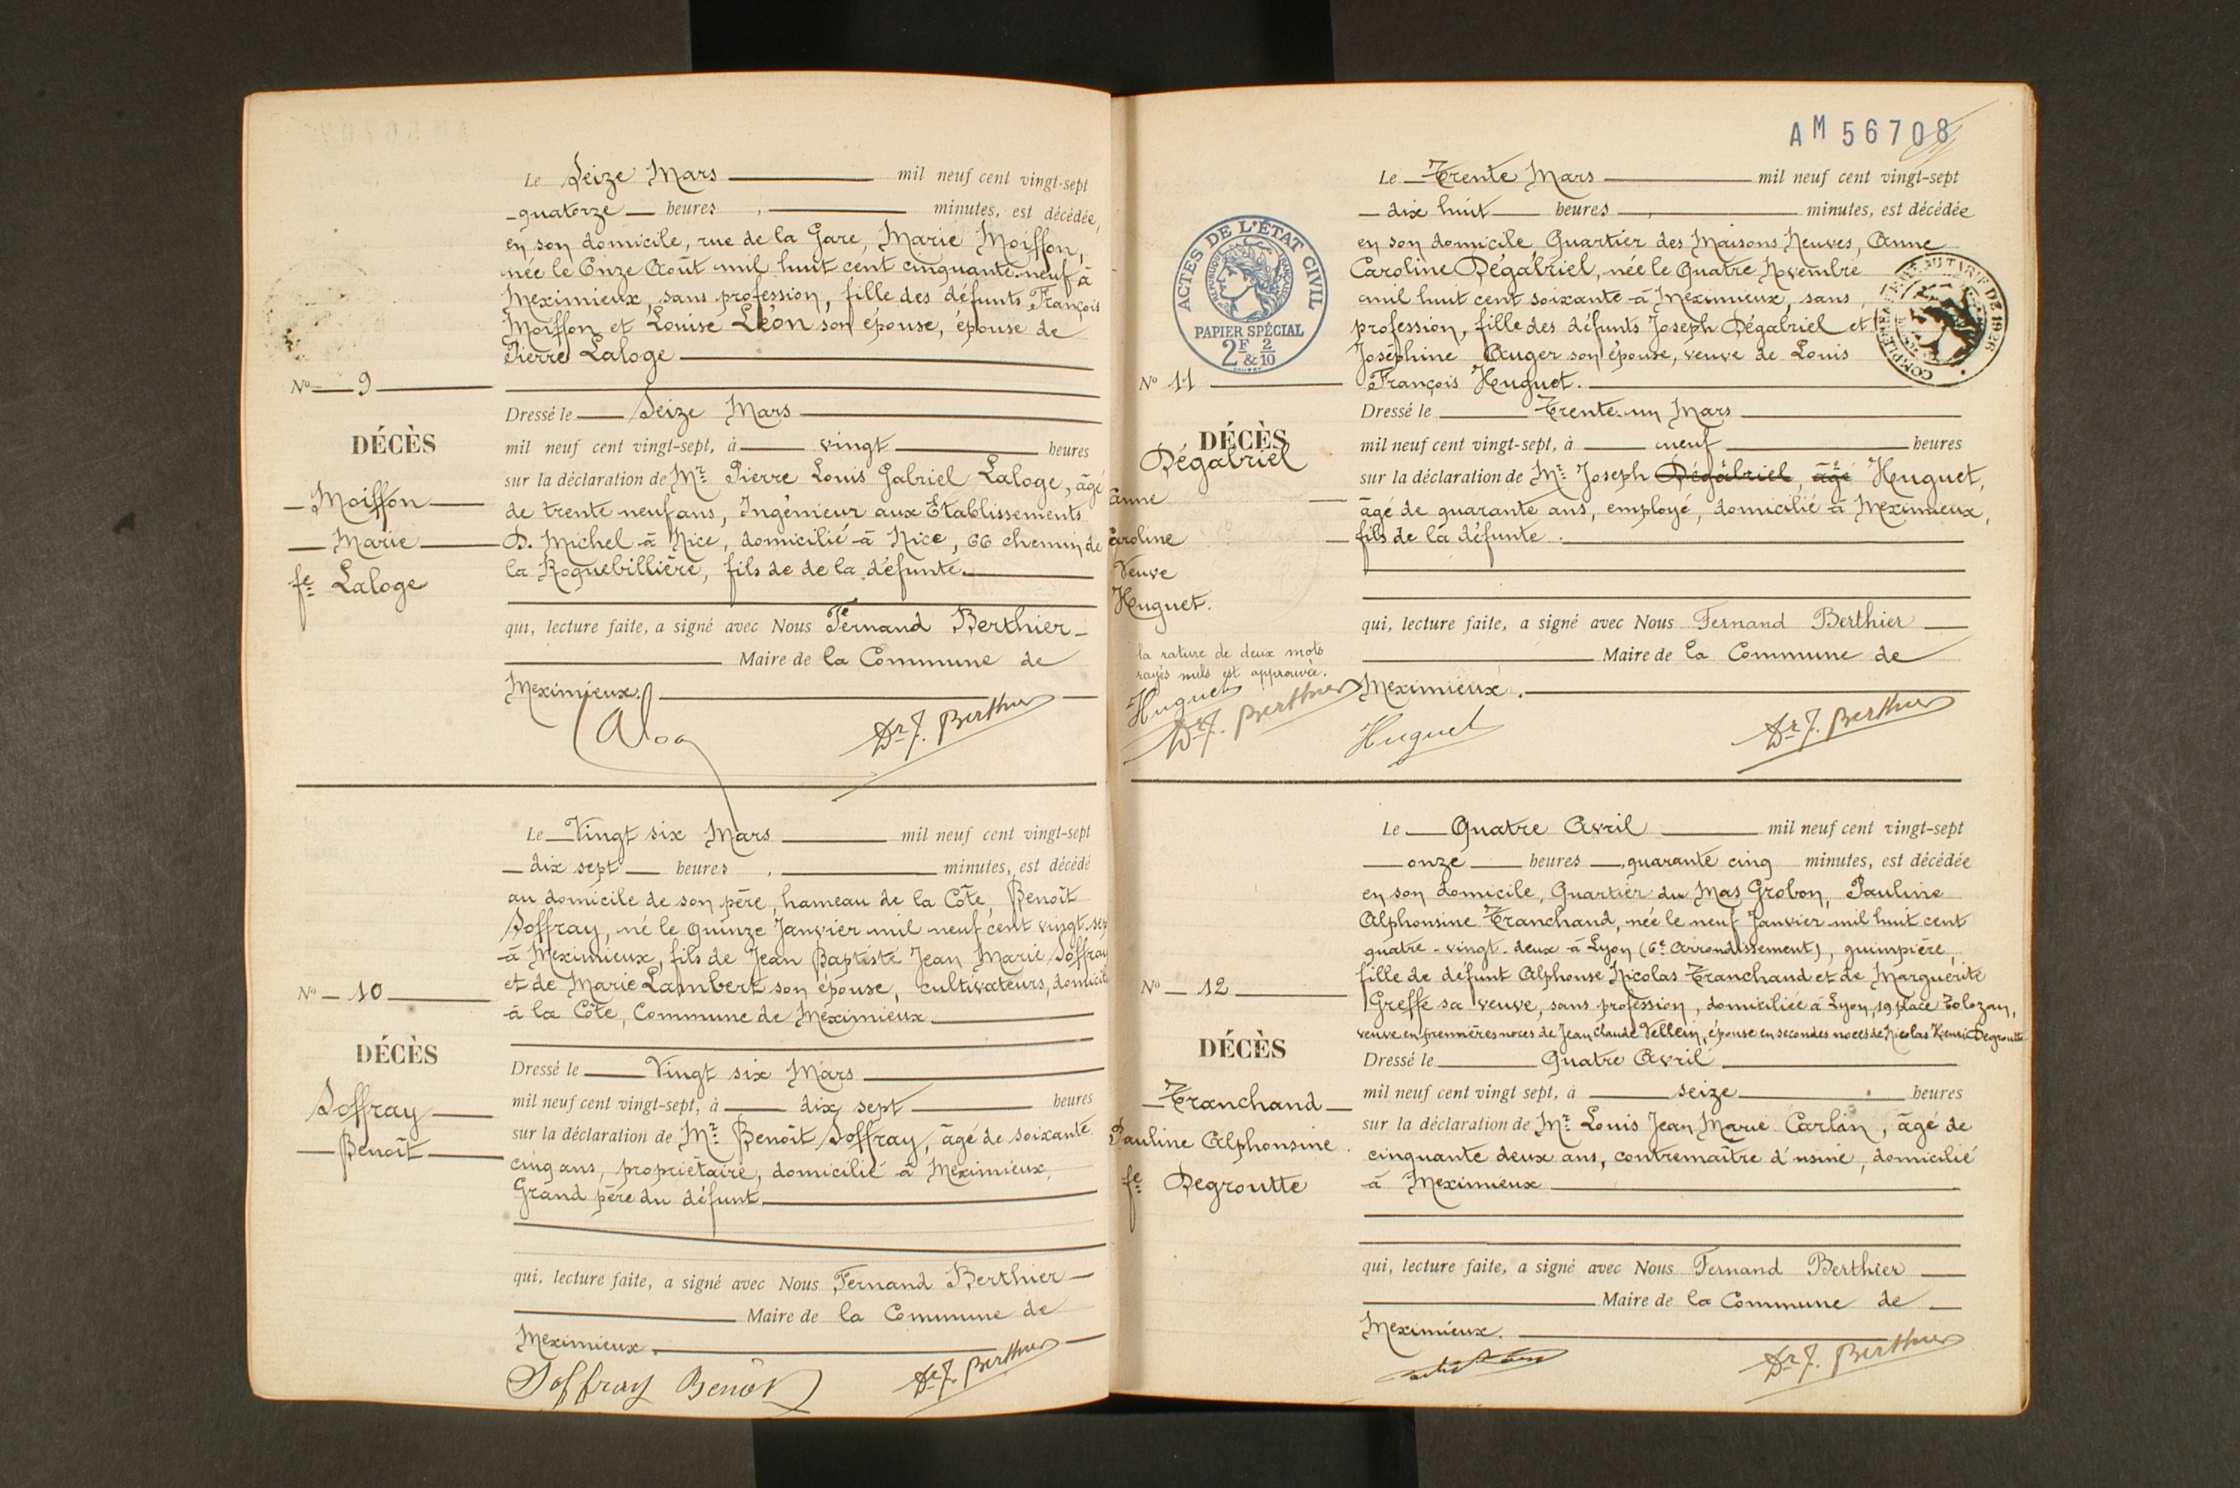 Le Seize Mars mil neuf cent vingt-sept
quatorze heures, minutes, est décédée,
en son domicile, rue de la Gare, Marie Moiffon,
née le Onze Août mil huit cent cinquante-neuf à
Meximieux, sans profession, fille des défunts François
Moiffon et Louise Léon son épouse, épouse de
Pierre Laloge
No 9
Dressé le Seize Mars
DÉCÈS
mil neuf cent vingt-sept, à vingt heures
sur la déclaration de Mr Pierre Louis Gabriel Laloge, âgé
Moiffon
de trente neuf ans, Ingénieur aux Etablissements
Marie
D. Michel à Nice, domicilié à Nice, 66 chemin de
fe Laloge
la Roquebillière, fils de de la défunte.
qui, lecture faite, a signé avec Nous Fernand Berthier
Maire de la Commune de
Meximieux.
Dr F. Berthier
Le Vingt six Mars mil neuf cent vingt-sept
dix sept heures, minutes, est décédé
au domicile de son père, hameau de la Côte, Benoît
Soffray, né le quinze Janvier mil neuf cent vingt-sep
à Meximieux, fils de Jean Baptiste Jean Marie Soffray
et de Marie Lambert son épouse, cultivateurs, domicili
No 10
à la Côte, Commune de Meximieux
DÉCÈS
Dressé le Vingt six Mars
Soffray
mil neuf cent vingt-sept, à dix sept heures
Benoît
sur la déclaration de Mr Benoît Soffray, âgé de soixante
cinq ans, propriétaire, domicilié à Meximieux,
Grand père du défunt
qui, lecture faite, a signé avec Nous Fernand Berthier
Maire de la Commune de
Meximieux.
Soffray Benoît
Dr F. Berthier
AM 56708
ACTES DE L'ÉTAT CIVIL
RÉPUBLIQUE FRANÇAISE
PAPIER SPÉCIAL
2F & 2/10
TARIF DE 1926
Le Trente Mars mil neuf cent vingt-sept
dix huit heures, minutes, est décédée
en son domicile Quartier des Maisons Neuves, Anne
Caroline Dégabriel, née le Quatre Novembre
mil huit cent soixante à Meximieux, sans
profession, fille des défunts Joseph Dégabriel et
Joséphine Auger son épouse, veuve de Louis
François Huguet.
No 11
Dressé le Trente-un Mars
DÉCÈS
mil neuf cent vingt-sept, à neuf heures
Dégabriel
sur la déclaration de Mr Joseph Dégabriel, âgé Huguet,
Anne
âgé de quarante ans, employé, domicilié à Meximieux,
Caroline
fils de la défunte.
Veuve
Huguet.
qui, lecture faite, a signé avec Nous Fernand Berthier
la rature de deux mots
rayés nuls est approuvée.
Maire de la Commune de
Meximieux.
Huguet
Dr F. Berthier
Huguet
Dr F. Berthier
Le Quatre Avril mil neuf cent vingt-sept
onze heures, quarante cinq minutes, est décédée
en son domicile, Quartier du Mas Grobon, Pauline
Alphonsine Tranchand, née le neuf Janvier mil huit cent
quatre-vingt-deux à Lyon (6e Arrondissement), guimpière,
fille de défunt Alphonse Nicolas Tranchand et de Marguerite
No 12
Greffe sa veuve, sans profession, domiciliée à Lyon, 19 place Tolozan,
veuve en premières noces de Jean Claude Vellein, épouse en secondes noces de Nicolas Henri Degroutte
DÉCÈS
Dressé le Quatre Avril
Tranchand
mil neuf cent vingt sept, à seize heures
Pauline Alphonsine
sur la déclaration de Mr Louis Jean Marie Carlin, âgé de
cinquante deux ans, contremaître d'usine, domicilié
fe Degroutte
à Meximieux
qui, lecture faite, a signé avec Nous Fernand Berthier
Maire de la Commune de
Meximieux.
Dr F. Berthier